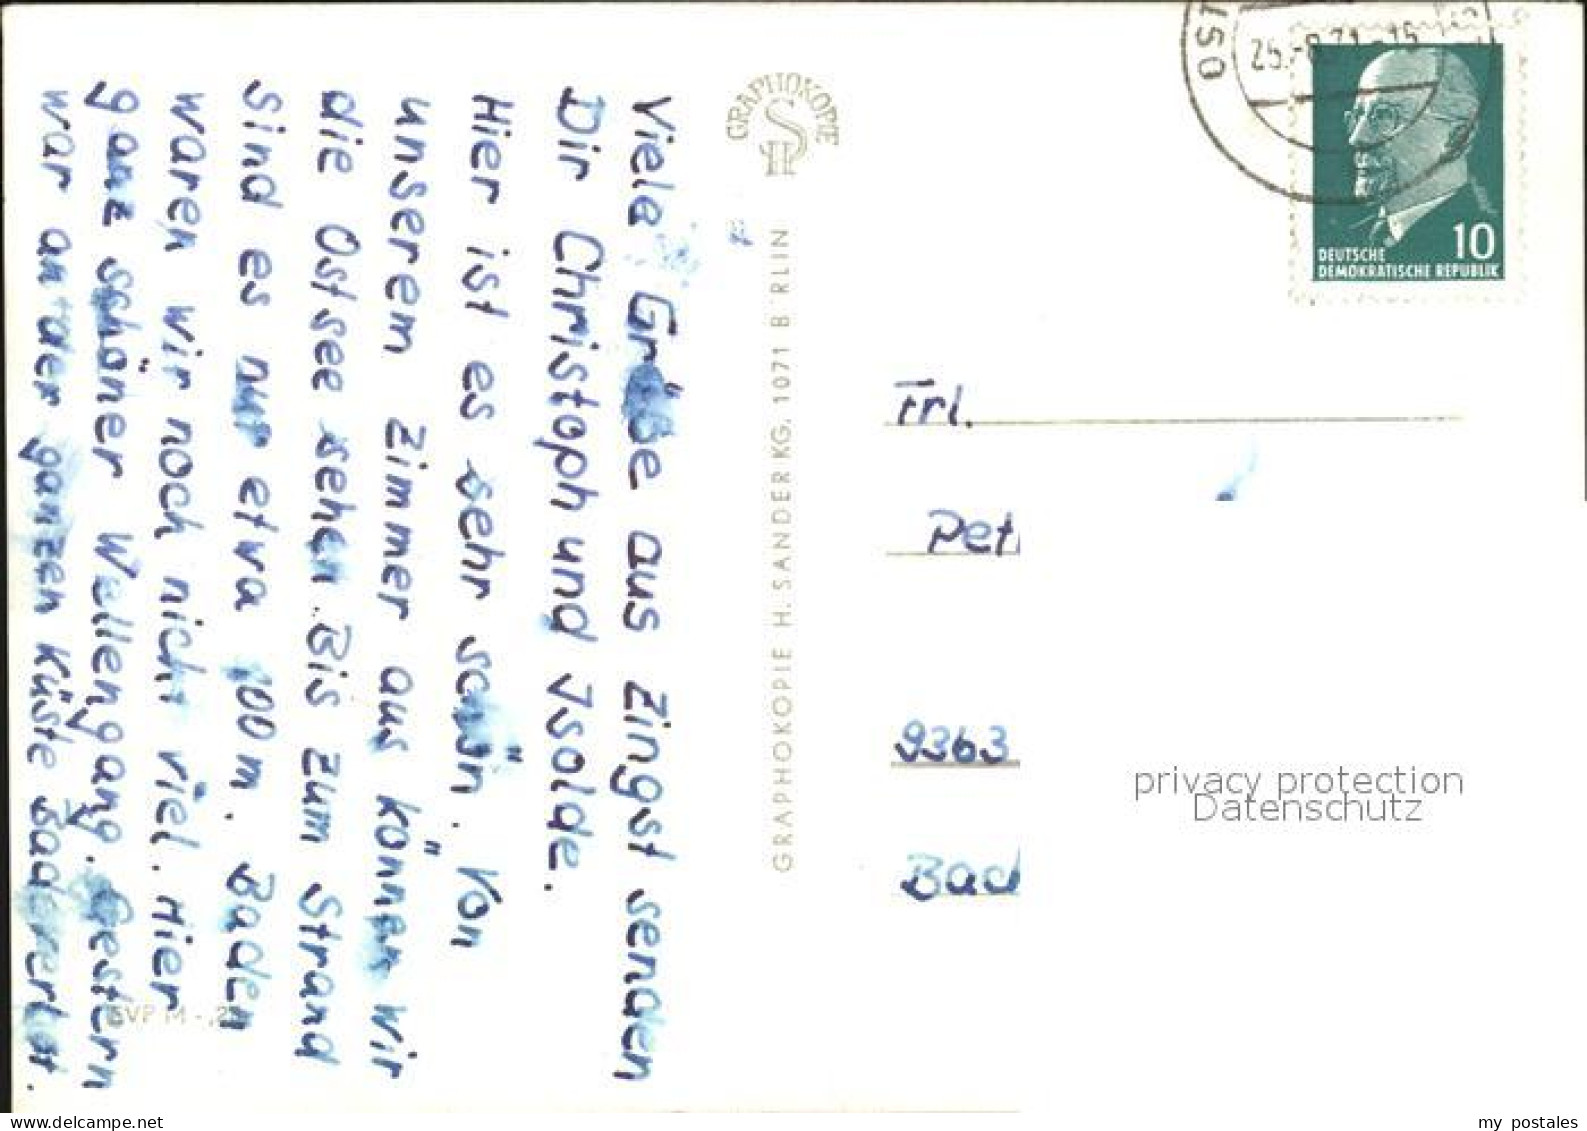 Viele Grüße aus Zingst senden
Dir Christoph und Isolde.
Hier ist es sehr schön. Von
unserem Zimmer aus können wir
die Ostsee sehen. Bis zum Strand
sind es nur etwa 100 m. Baden
waren wir noch nicht viel. Hier
ganz schöner Wellengang. Gestern
war an der ganzen Küste Badeverbot.
EVP M -,2
GRAPHOKOPIE
H S
GRAPHOKOPIE H. SANDER KG, 1071 BERLIN
OST
25.-8.71-15
10
DEUTSCHE
DEMOKRATISCHE REPUBLIK
Frl.
Pet
9363
privacy protection
Datenschutz
my postales